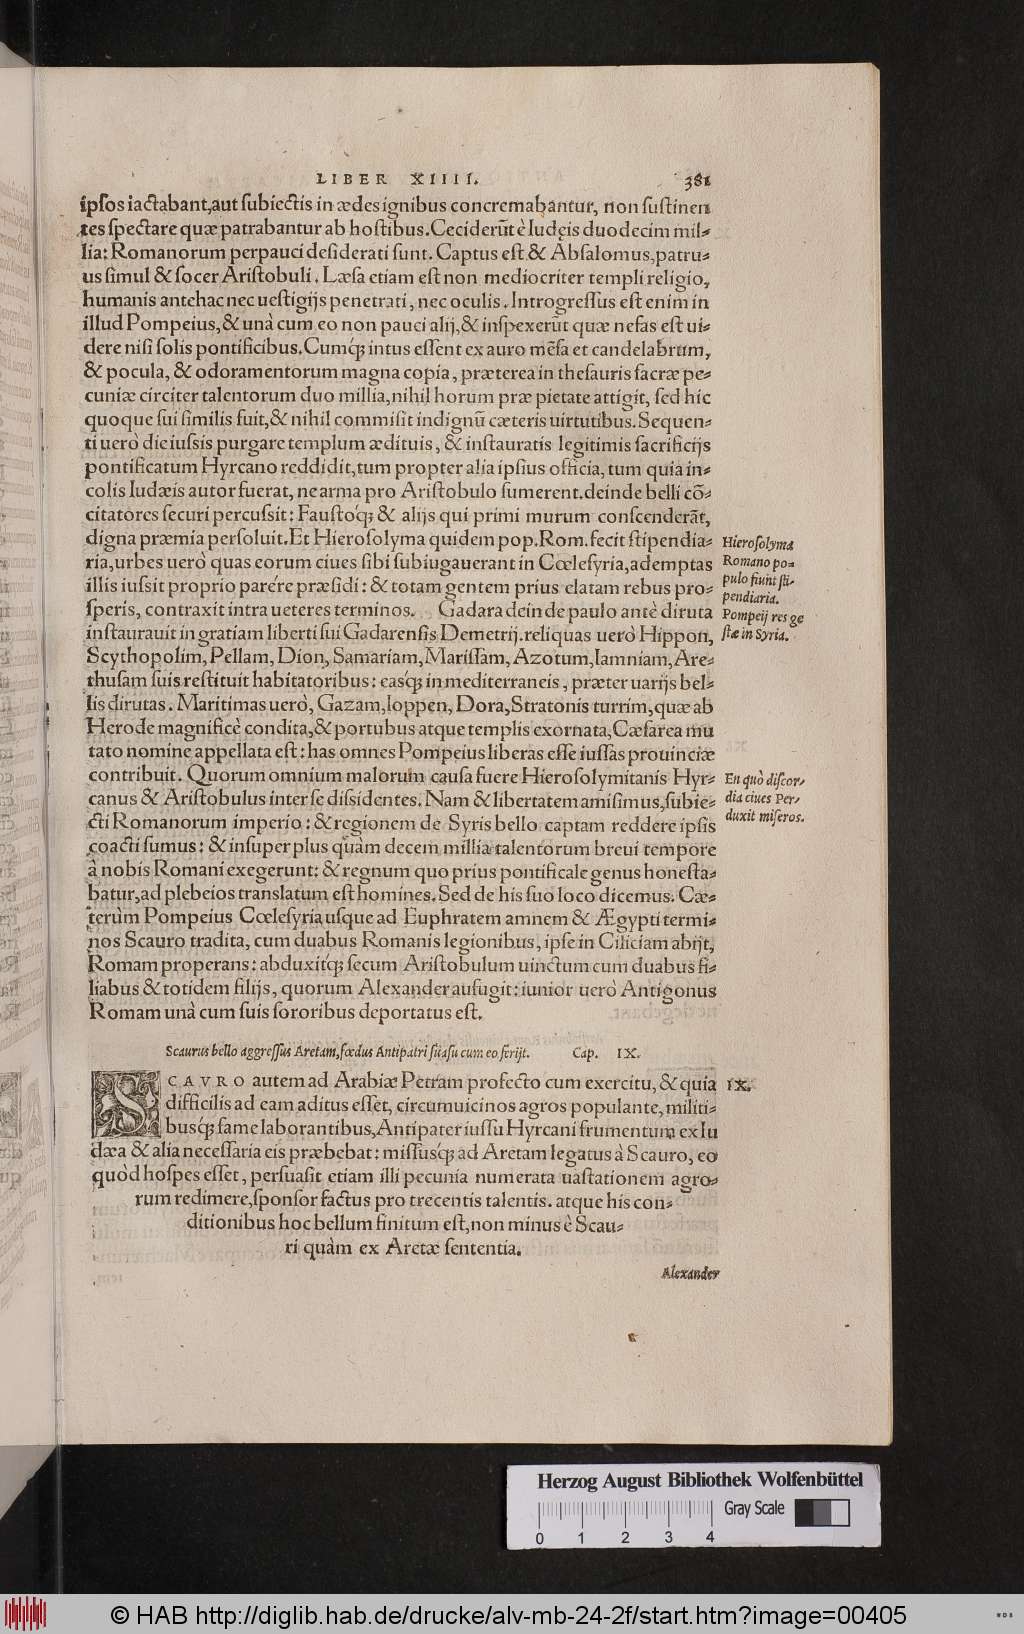 LIBER XIIII. 381
ipſos iactabant, aut ſubiectis in ædes ignibus concremabantur, non ſuſtinen
tes ſpectare quæ patrabantur ab hoſtibus. Ceciderūt è Iudęis duodecim mil-
lia: Romanorum perpauci deſiderati ſunt. Captus eſt & Abſalomus, patru-
us ſimul & ſocer Ariſtobuli. Læſa etiam eſt non mediocriter templi religio,
humanis antehac nec ueſtigijs penetrati, nec oculis. Introgreſſus eſt enim in
illud Pompeius, & unà cum eo non pauci alij, & inſpexerūt quæ nefas eſt ui-
dere niſi ſolis pontificibus. Cumq́; intus eſſent ex auro mēſa et candelabrum,
& pocula, & odoramentorum magna copia, præterea in theſauris ſacræ pe-
cuniæ circiter talentorum duo millia, nihil horum præ pietate attigit, ſed hic
quoque ſui ſimilis fuit, & nihil commiſit indignū cæteris uirtutibus. Sequen-
ti uerò die iuſsis purgare templum ædituis, & inſtauratis legitimis ſacrificijs
pontificatum Hyrcano reddidit, tum propter alia ipſius officia, tum quia in-
colis Iudæis autor fuerat, ne arma pro Ariſtobulo ſumerent. deinde belli cō-
citatores ſecuri percuſsit: Fauſtoq́; & alijs qui primi murum conſcenderāt,
digna præmia perſoluit. Et Hieroſolyma quidem pop. Rom. fecit ſtipendia-
ria, urbes uerò quas eorum ciues ſibi ſubiugauerant in Cœleſyria, ademptas
illis iuſsit proprio parére præſidi: & totam gentem prius elatam rebus pro-
ſperis, contraxit intra ueteres terminos. Gadara deinde paulo antè diruta
inſtaurauit in gratiam liberti ſui Gadarenſis Demetrij. reliquas uerò Hippon,
Scythopolim, Pellam, Dion, Samariam, Mariſſam, Azotum, Iamniam, Are-
thuſam ſuis reſtituit habitatoribus: easq́; in mediterraneis, præter uarijs bel-
lis dirutas. Maritimas uerò, Gazam, Ioppen, Dora, Stratonis turrim, quæ ab
Herode magnificè condita, & portubus atque templis exornata, Cæſarea mu
tato nomine appellata eſt: has omnes Pompeius liberas eſſe iuſſas prouinciæ
contribuit. Quorum omnium malorum cauſa fuere Hieroſolymitanis Hyr-
canus & Ariſtobulus inter ſe diſsidentes. Nam & libertatem amiſimus, ſubie-
cti Romanorum imperio: & regionem de Syris bello captam reddere ipſis
coacti ſumus: & inſuper plus quàm decem millia talentorum breui tempore
à nobis Romani exegerunt: & regnum quo prius pontificale genus honeſta-
batur, ad plebeios translatum eſt homines. Sed de his ſuo loco dicemus. Cæ-
terùm Pompeius Cœleſyria uſque ad Euphratem amnem & Ægypti termi-
nos Scauro tradita, cum duabus Romanis legionibus, ipſe in Ciliciam abijt,
Romam properans: abduxitq́; ſecum Ariſtobulum uinctum cum duabus fi-
liabus & totidem filijs, quorum Alexander aufugit: iunior uerò Antigonus
Romam unà cum ſuis ſororibus deportatus eſt.
Hieroſolyma
Romano po-
pulo fiunt ſti-
pendiaria.
Pompeij res ge
ſtæ in Syria.
En quò diſcor-
dia ciues Per-
duxit miſeros.
Scaurus bello aggreſſus Aretam, fœdus Antipatri ſuaſu cum eo ferijt. Cap. IX.
SCAVRO autem ad Arabiæ Petram profecto cum exercitu, & quia IX.
difficilis ad eam aditus eſſet, circumuicinos agros populante, militi-
busq́; fame laborantibus, Antipater iuſſu Hyrcani frumentum ex Iu
dæa & alia neceſſaria eis præbebat: miſſusq́; ad Aretam legatus à Scauro, eo
quòd hoſpes eſſet, perſuaſit etiam illi pecunia numerata uaſtationem agro-
rum redimere, ſponſor factus pro trecentis talentis. atque his con-
ditionibus hoc bellum finitum eſt, non minus è Scau-
ri quàm ex Aretæ ſententia.
Alexander
Herzog August Bibliothek Wolfenbüttel
Gray Scale
0 1 2 3 4
© HAB http://diglib.hab.de/drucke/alv-mb-24-2f/start.htm?image=00405